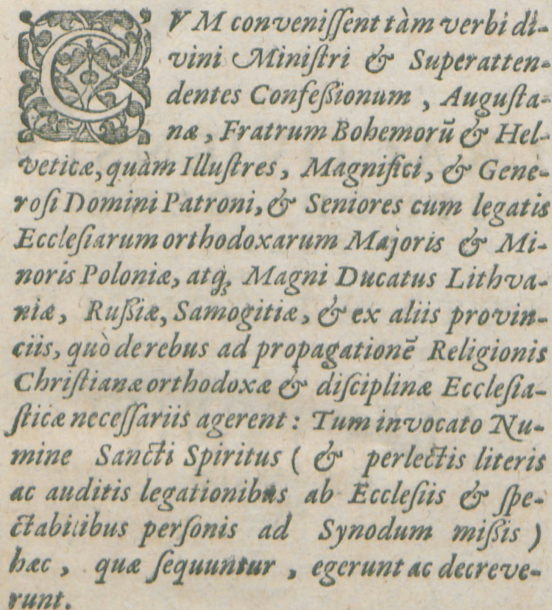 CVM conveniſſent tàm verbi di-
vini Miniſtri & Superatten-
dentes Confeßionum, Auguſta-
næ, Fratrum Bohemorū & Hel-
veticæ, quàm Illuſtres, Magnifici, & Gene-
roſi Domini Patroni, & Seniores cum legatis
Eccleſiarum orthodoxarum Majoris & Mi-
noris Poloniæ, atq; Magni Ducatus Lithva-
niæ, Rußiæ, Samogitiæ, & ex aliis provin-
ciis, quò de rebus ad propagationē Religionis
Chriſtianæ orthodoxæ & diſciplinæ Eccleſia-
ſticæ neceſſariis agerent: Tum invocato Nu-
mine Sancti Spiritus (& perlectis literis
ac auditis legationibus ab Eccleſiis & ſpe-
ctabilibus perſonis ad Synodum mißis)
hæc, quæ ſequuntur, egerunt ac decreve-
runt.